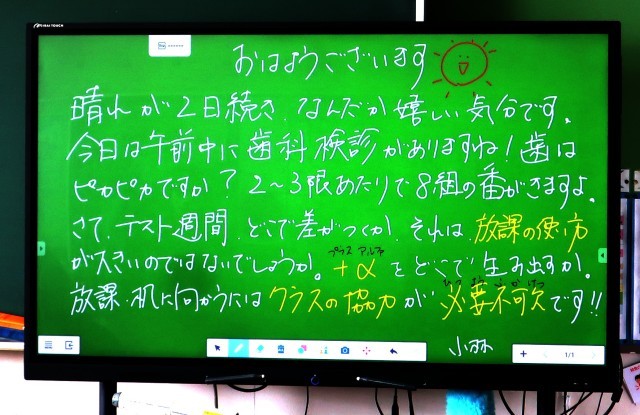 おはようございます
晴れが2日続き、なんだか嬉しい気分です。
今日は午前中に歯科検診がありますね！歯は
ピカピカですか？2〜3限あたりで8組の番がきますよ。
さて、テスト週間、どこで差がつくか、それは、放課の使い方
が大きいのではないでしょうか。+α プラス アルファ をどこで生み出すか。
放課、机に向かうにはクラスの協力が必要不可欠 ひつ よう ふ か けつ です!!
小羽
1/1